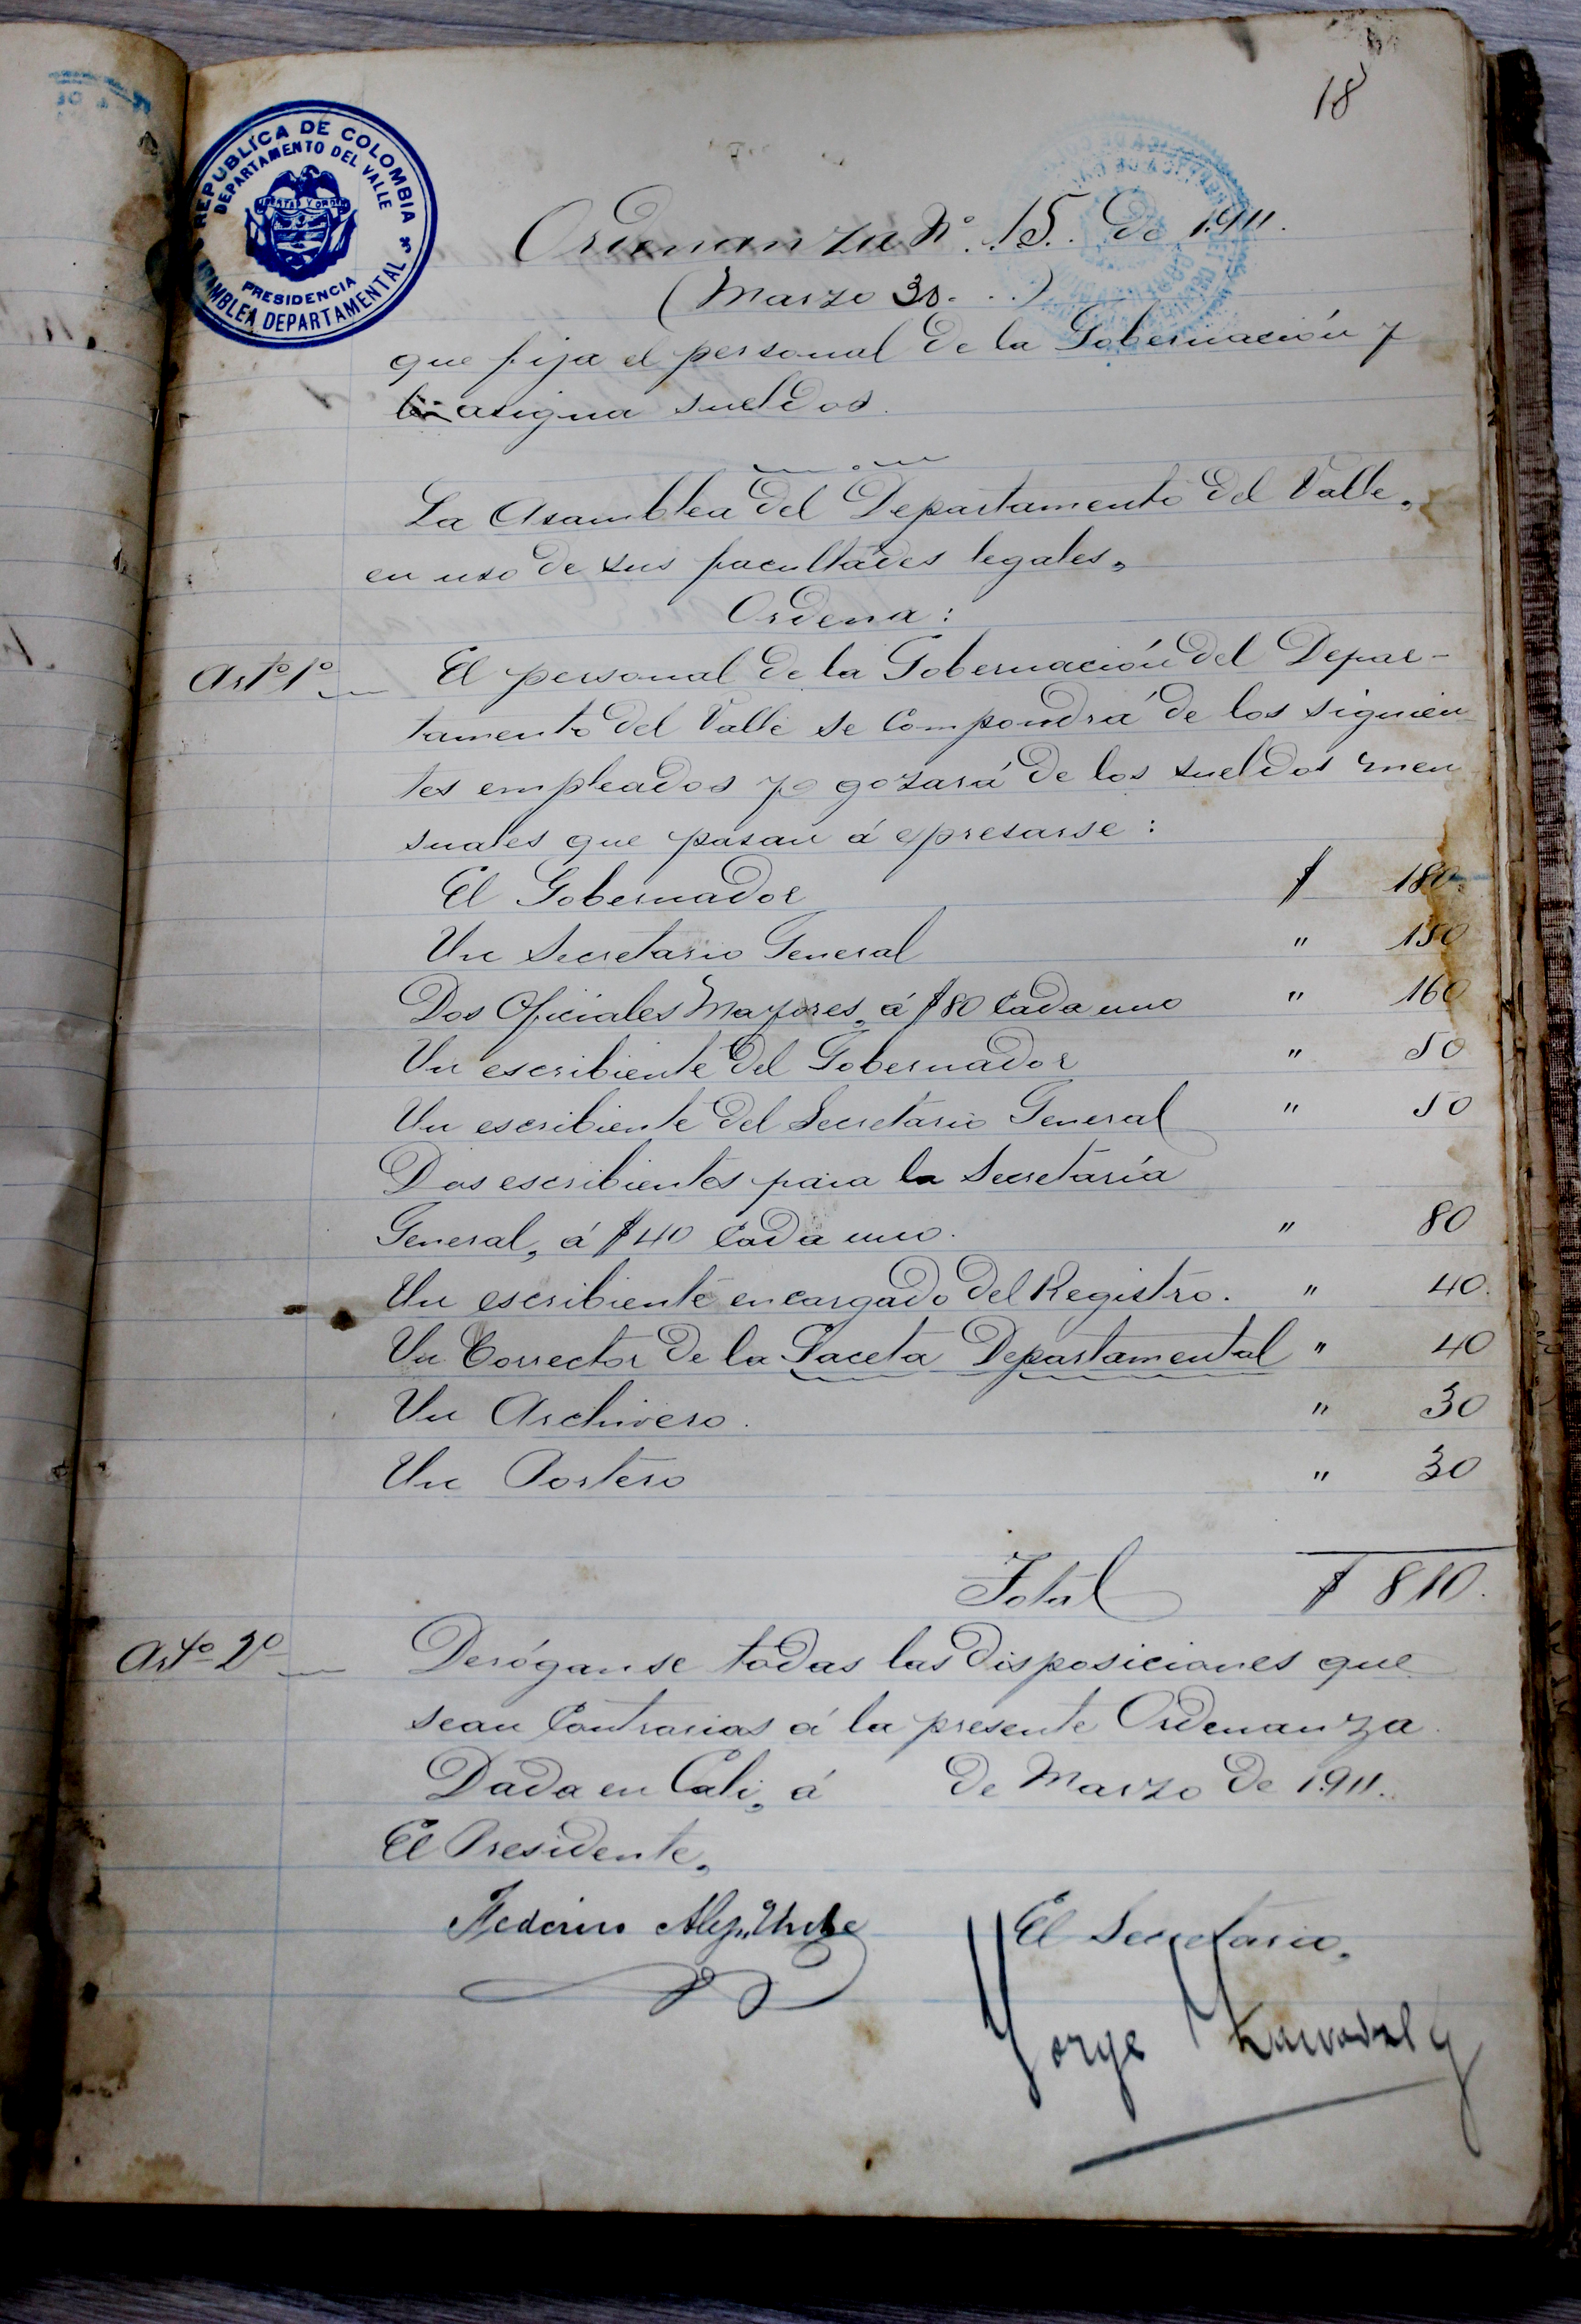 18
REPUBLICA DE COLOMBIA
DEPARTAMENTO DEL VALLE
LIBERTAD Y ORDEN
PRESIDENCIA
ASAMBLEA DEPARTAMENTAL
Ordenanza Nº. 15. de 1.911.
(Marzo 30. . .)
que fija el personal de la Gobernación y
asigna sueldos.
La Asamblea del Departamento del Valle,
en uso de sus facultades legales,
Ordena:
Arto 1o El personal de la Gobernación del Depar-
tamento del Valle se compondrá de los siguien
tes empleados y gozará de los sueldos men
suales que pasan á expresarse:
El Gobernador $ 180.
Un Secretario General " 150
Dos Oficiales Mayores, á $80 cada uno " 160
Un escribiente del Gobernador " 50
Un escribiente del Secretario General " 50
Dos escribientes para la Secretaría
General, á $40 cada uno. " 80
Un escribiente encargado del Registro. " 40.
Un Corrector de la Gaceta Departamental " 40
Un Archivero. " 30
Un Portero " 30
Total $ 810.
Arto 2o Deróganse todas las disposiciones que
sean contrarias á la presente Ordenanza.
Dada en Cali, á de Marzo de 1.911.
El Presidente,
Federico Alejo Uribe
El Secretario,
Jorge